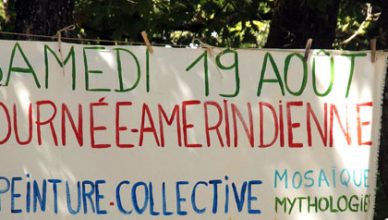 SAMEDI 19 AOÛT
OURNÉE-AMERINDIENNE
PEINTURE-COLLECTIVE MOSAÏQUE
MYTHOLOGIE